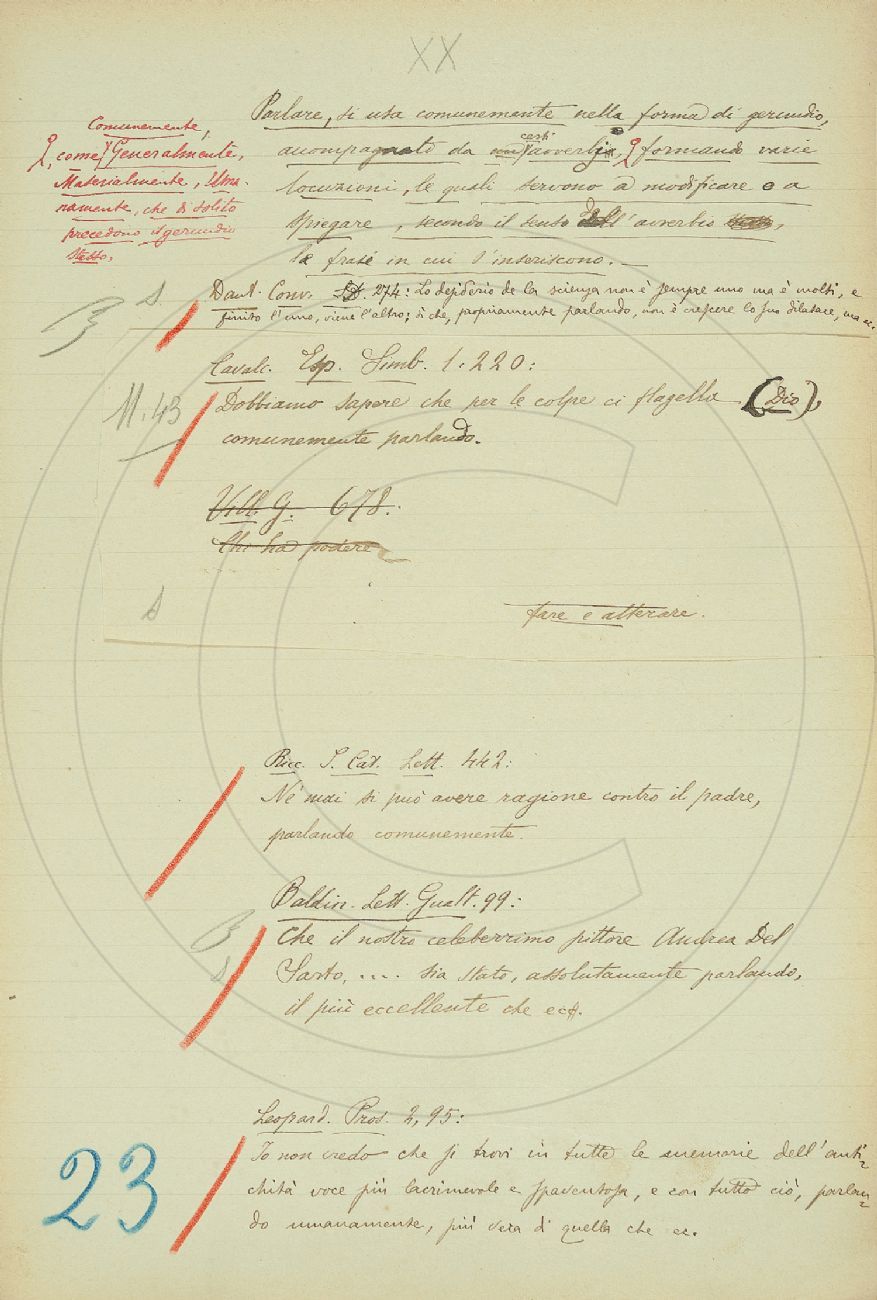 XX
Parlare, si usa comunemente nella forma di gerundio,
accompagnato da certi avverbj, formando varie
locuzioni, le quali servono a modificare o a
spiegare, secondo il senso dell'avverbio,
la frase in cui s'inseriscono. —
Comunemente,
come Generalmente,
Materialmente, Uma-
namente, che di solito
precedono il gerundio
stesso.
Dant. Conv. 274: Lo desiderio de la scienza non è sempre uno ma è molti, e
finito l'uno, viene l'altro; sì che, propriamente parlando, non è crescere lo suo dilatare, ma ec.
Cavalc. Esp. Simb. 1.220:
M. 43
Dobbiamo sapere che per le colpe ci flagella (Dio),
comunemente parlando.
Vill. G. 678.
Chi ha podere
fare e alterare.
Ricc. S. Cat. Lett. 442:
Nè mai si può avere ragione contro il padre,
parlando comunemente.
Baldin. Lett. Gualt. 99:
Che il nostro celeberrimo pittore Andrea Del
Sarto, .... sia stato, assolutamente parlando,
il più eccellente che ec.
Leopard. Pros. 2, 95:
Io non credo che si trovi in tutte le memorie dell'anti-
chità voce più lacrimevole e spaventosa, e con tutto ciò, parlan-
do umanamente, più vera di quella che ec.
23